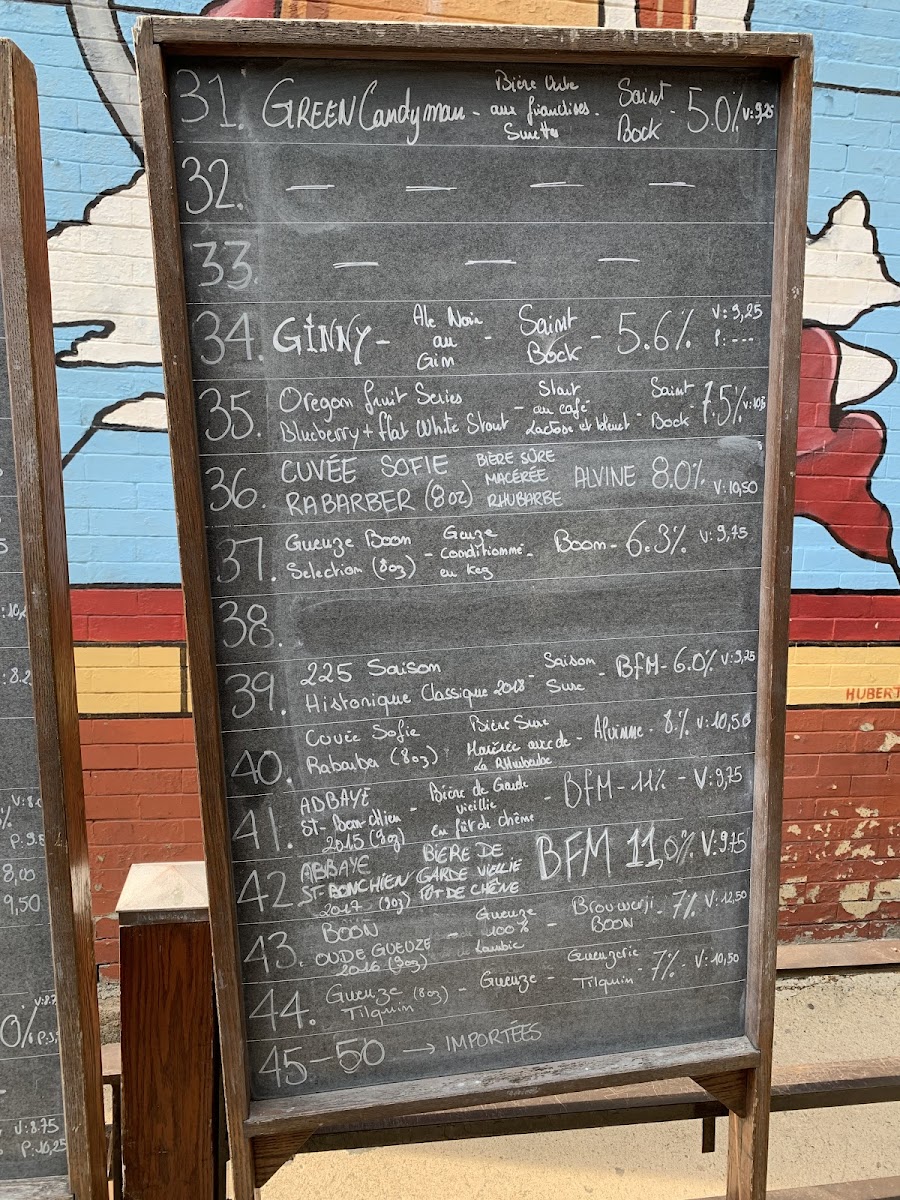 31. GREEN Candyman - Bière Sure aux friandises Surettes - Saint Bock - 5.0% V: 9,25
32. — — — —
33. — — —
34. GINNY - Ale Noir au Gin - Saint Bock - 5.6% V: 9,25 P: ---
35. Oregon fruit Series Blueberry + flat White Stout - Stout au café Lactose et bleuet - Saint Bock - 7.5%
36. CUVÉE SOFIE RABARBER (8oz) BIÈRE SÛRE MACÉRÉE RHUBARBE ALVINE 8.0% V: 10,50
37. Gueuze Boom Selection (8oz) - Geuze Conditionné en keg - Boom - 6.3% V: 9,75
38.
39. 225 Saison Historique Classique 2018 - Saison Sure - BfM - 6.0% V: 9,25
40. Cuvée Sofie Rabarber (8oz) Bière Sure Macérée avec de La Rhubarbe - Alvinne - 8% V: 10,50
41. ABBAYE St-Bon-Chien 2015 (9oz) - Bière de Garde vieillie en fût de chêne - BfM - 11% - V: 9,75
42. ABBAYE ST-BONCHIEN 2017 (9oz) BIÈRE DE GARDE VIELLIE FÛT DE CHÊNE BFM 11,0% V: 9,75
43. BOON OUDE GUEUZE 2016 (9oz) - Gueuze 100% de Lambic - Brouwerji BOON - 7% V: 12,50
44. Gueuze (8oz) Tilquin - Gueuze - Gueuzerie Tilquin - 7% - V: 10,50
45-50 → IMPORTÉES
HUBERT
: 8.2
8,00
9,50
0%
V: 8.75
P: 10,25